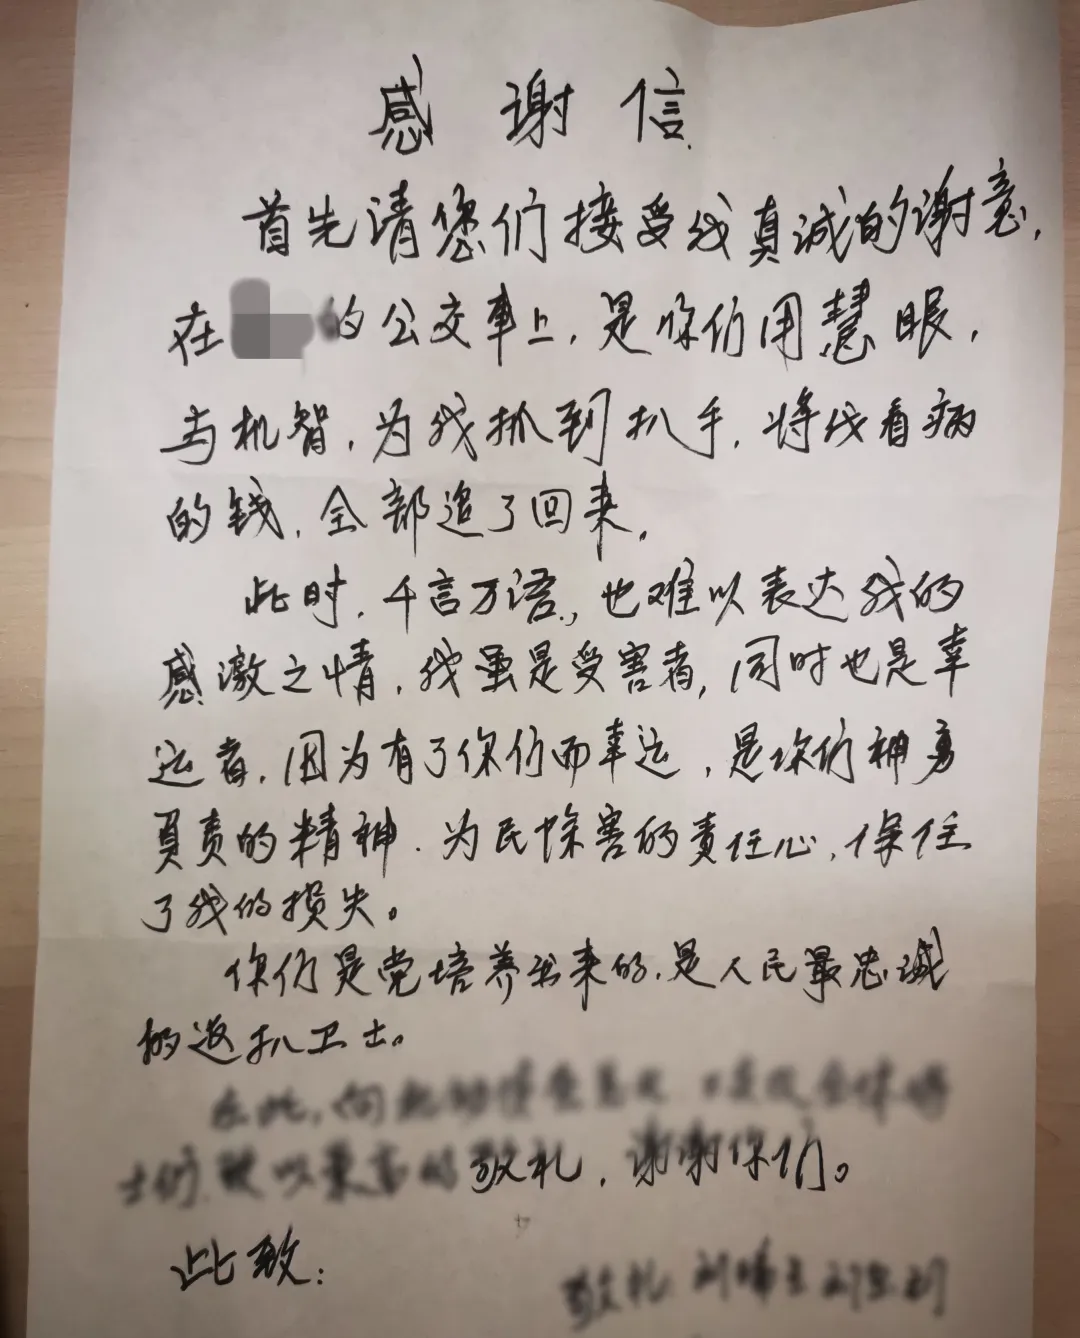 感谢信
首先请您们接受我真诚的谢意，
在 的公交车上，是你们用慧眼，
与机智，为我抓到扒手，将我看病
的钱，全部追了回来。
此时，千言万语，也难以表达我的
感激之情，我虽是受害者，同时也是幸
运者，因为有了你们而幸运，是你们神勇
负责的精神，为民除害的责任心，保住
了我的损失。
你们是党培养出来的，是人民最忠诚
的返扒卫士。
在此，向
士们 敬以崇高的敬礼，谢谢你们。
此致：
敬礼